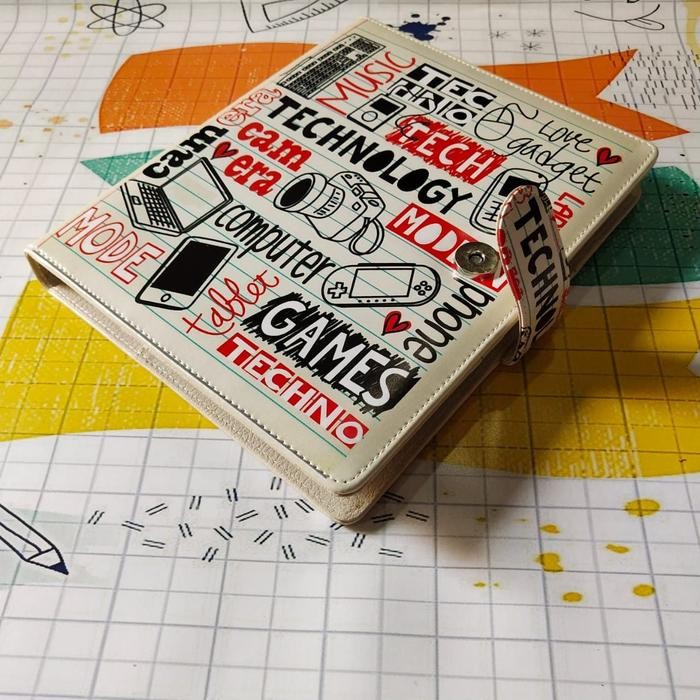 MUSIC
TEC
HNO
Love
gadget
camera
TECH
TECHNOLOGY
cam
era
MODE
computer
MODE
tablet
phone
GAMES
TECHNO
TECHNO